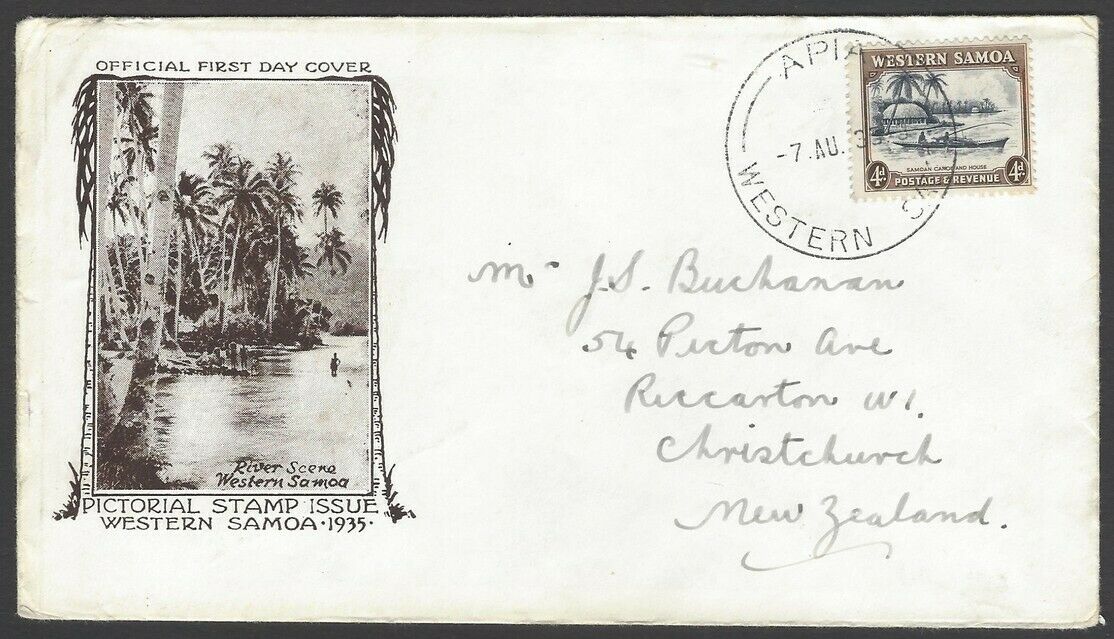 OFFICIAL FIRST DAY COVER
River Scene
Western Samoa
PICTORIAL STAMP ISSUE
WESTERN SAMOA · 1935 ·
APIA
-7. AU. 3
WESTERN SA
WESTERN SAMOA
SAMOAN CANOE AND HOUSE
4d 4d
POSTAGE & REVENUE
Mr J.S. Buchanan
54 Picton Ave
Riccarton W1.
Christchurch
New Zealand.